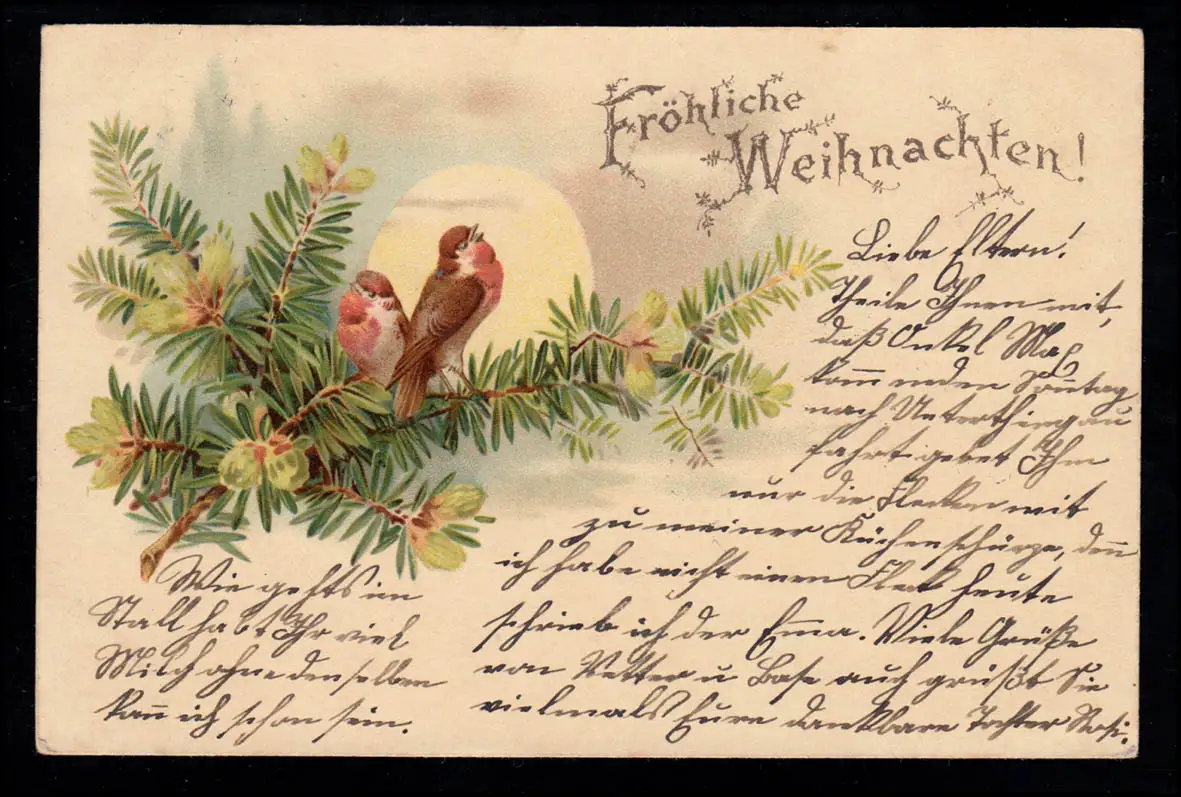 Fröhliche
Weihnachten!
Liebe Eltern!
Theile Ihnen mit,
daß Onkel Max
kom̅ enden Son̅tag
nach Unterthingau
fahrt gebet Ihm
nur die Flecken mit
zu meiner Küchenschürze, den̅
ich habe nicht einen Fleck heute
schrieb ich der Em̅a. Viele Grüße
von Vetter u Base auch grüßt Sie
vielmals Eure dankbare Tochter Rosi.
Wie gehts im
Stall habt Ihr viel
Milch ohne denselben
kan̅ ich schon sein.